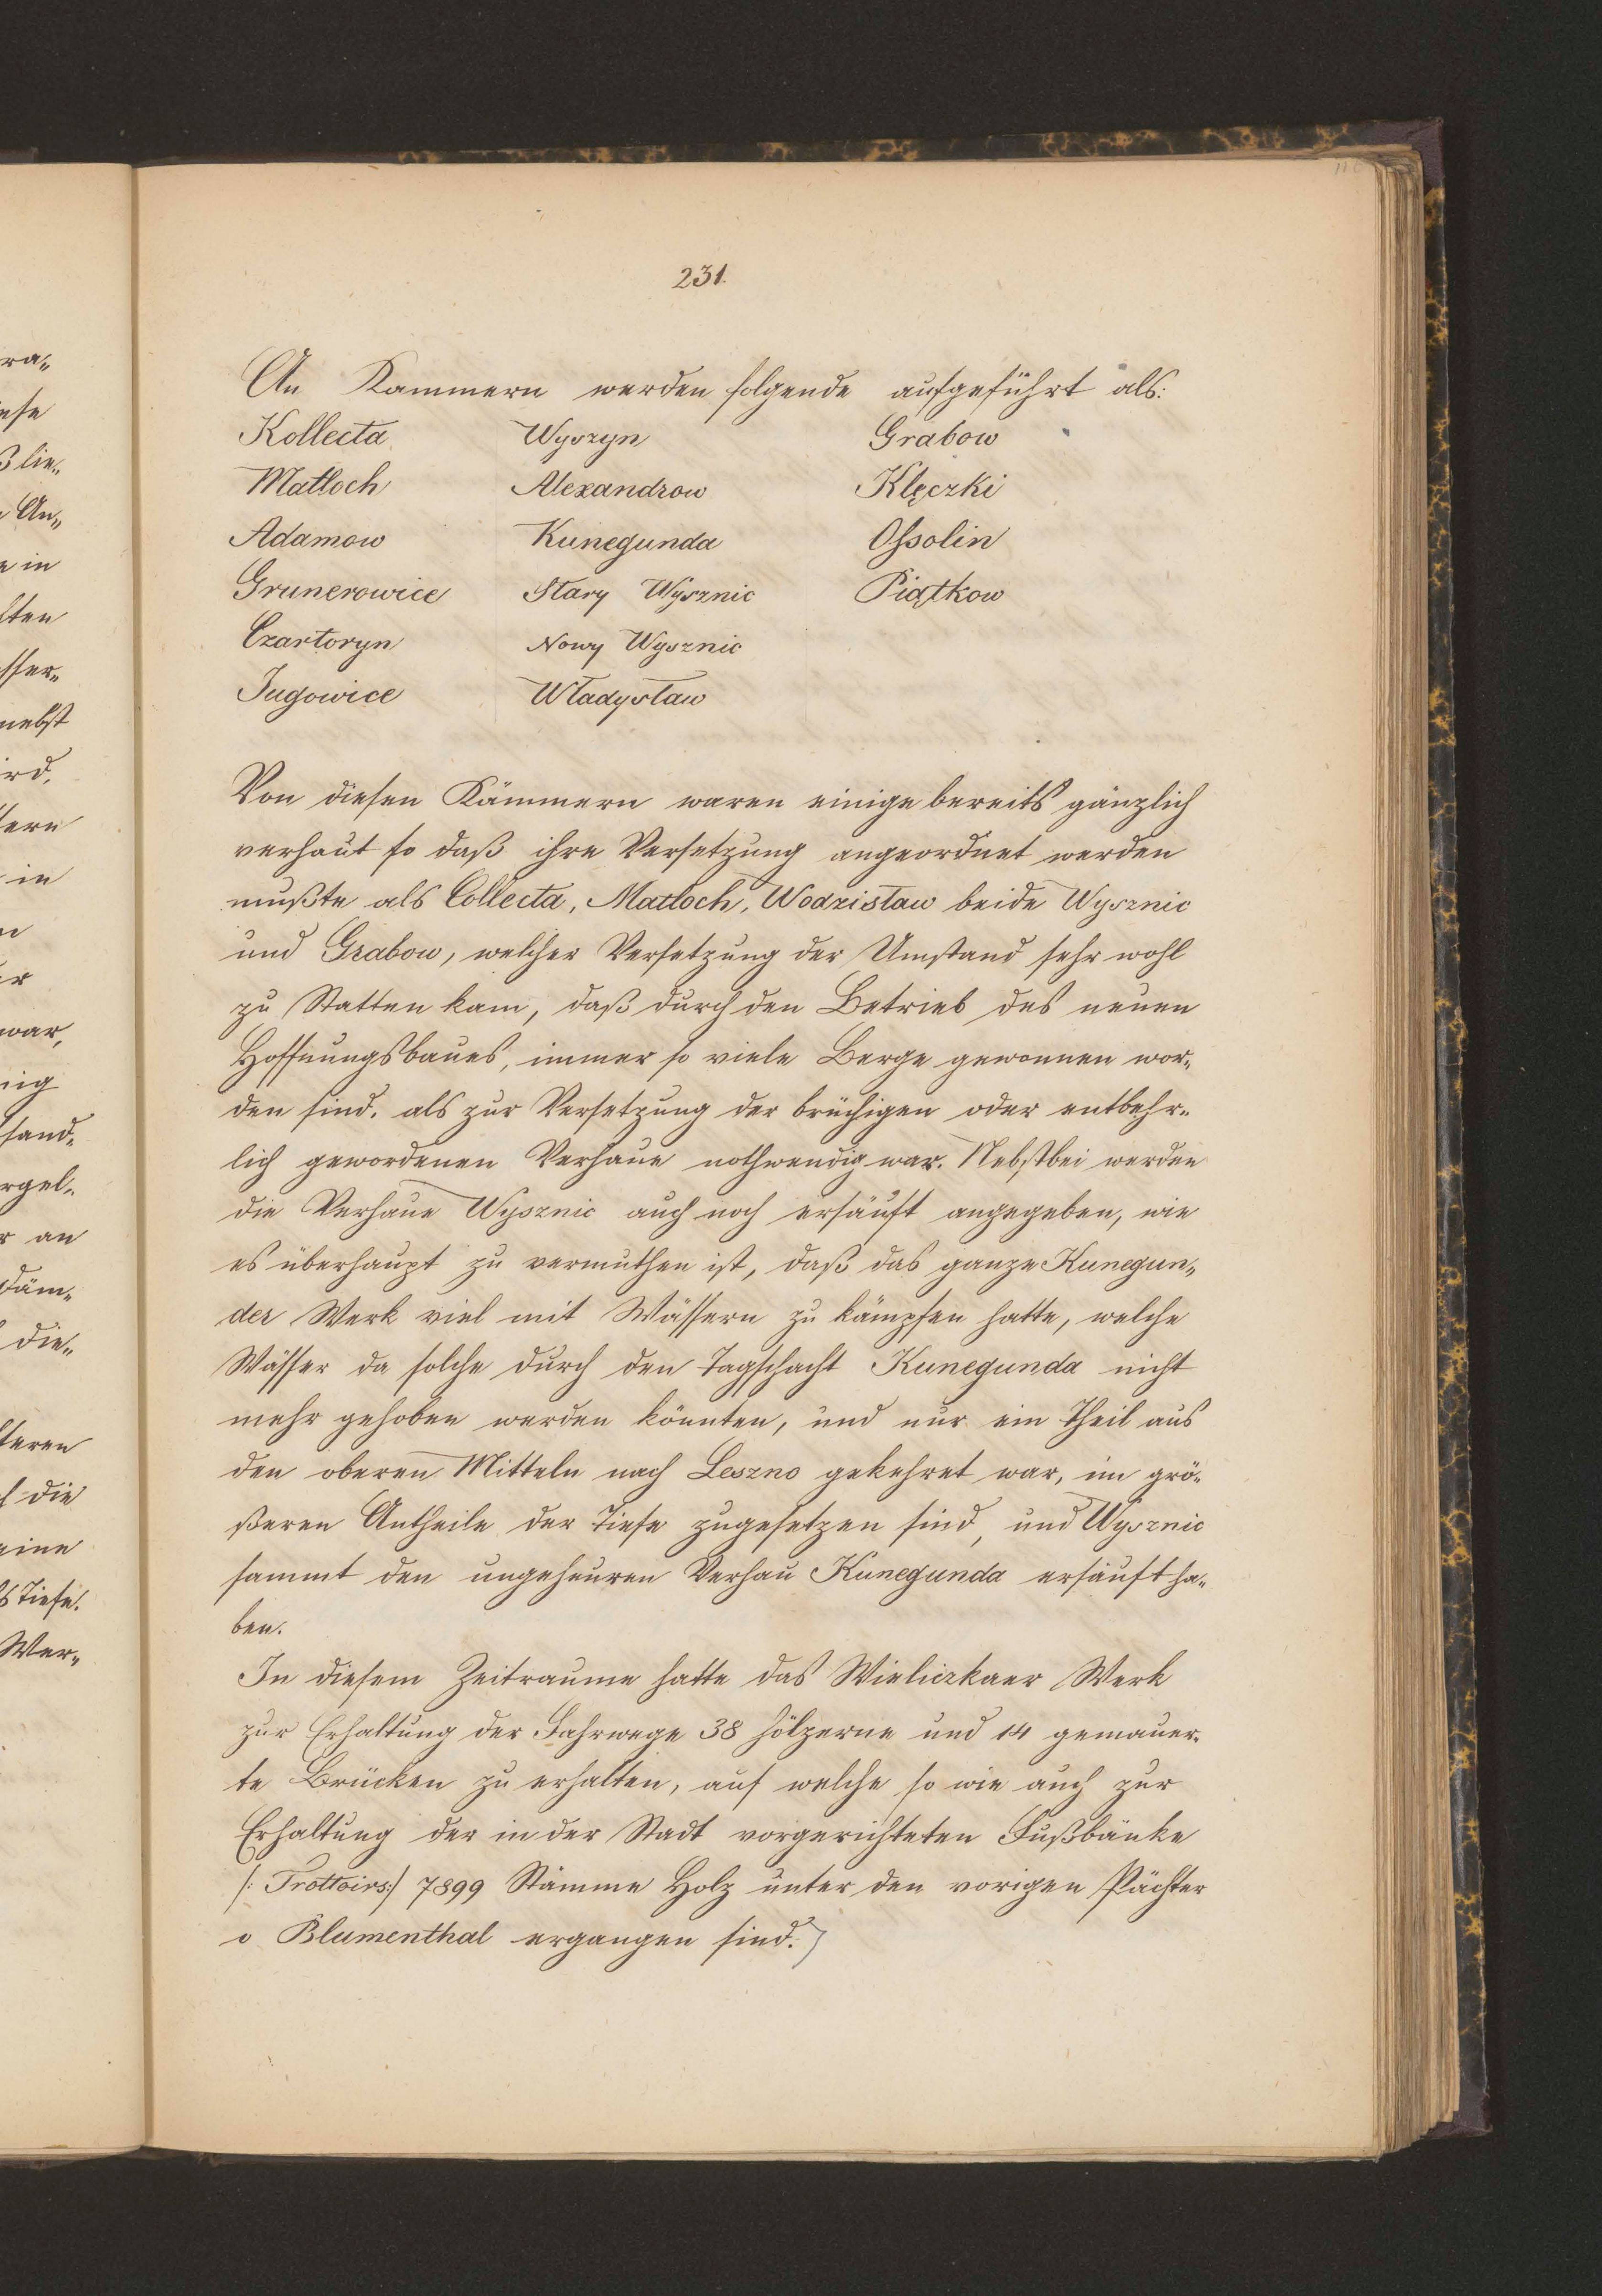 231.
An Kammern werden folgende aufgeführt als:
Kollecta Wyszyn Grabow
Matloch Alexandrow Klęczki
Adamow Kunegunda Ossolin
Grunerowice Stary Wysznic Piątkow
Czartoryn Nowy Wysznic
Jugowice Władysław
Von diesen Kämmern waren einige bereits gänzlich
verhaut so daß ihre Versetzung angeordnet werden
mußte als Collecta, Matloch, Wodzisław beide Wysznic
und Grabow, welcher Versetzung der Umstand sehr wohl
zu Statten kam, daß durch den Betrieb des neuen
Hoffnungsbaues, immer so viele Berge gewonnen wor„
den sind, als zur Versetzung der brüchigen oder entbehr„
lich gewordenen Verhaue nothwendig war. Nebstbei werden
die Verhaue Wysznic auch noch ersäuft angegeben, wie
es überhaupt zu vermuthen ist, daß das ganze Kunegun„
der Werk viel mit Wässern zu kämpfen hatte, welche
Wässer da solche durch den Tagschacht Kunegunda nicht
mehr gehoben werden könnten, und nur ein Theil aus
den oberen Mitteln nach Leszno gekehret war, im grö„
ßeren Antheile der Tiefe zugesetzen sind, und Wysznic
sammt den ungeheuren Verhau Kunegunda ersäuft ha„
ben.
In diesem Zeitraume hatte das Wieliczkaer Werk
zur Erhaltung der Fahrwege 38 hölzerne und 14 gemauer„
te Brücken zu erhalten, auf welche so wie auch zur
Erhaltung der in der Stadt vorgerichteten Fußbänke
/: Trottoirs :/ 7899 Stämme Holz unter den vorigen Pächter
v Blumenthal ergangen sind.
ra„
ese
ßlie„
An„
e in
ften
sser„
nebst
ird,
tern
in
er
war,
nig
sand„
rgel„
r an
däm„
die„
teren
die
eine
Tiefe.
Wer„